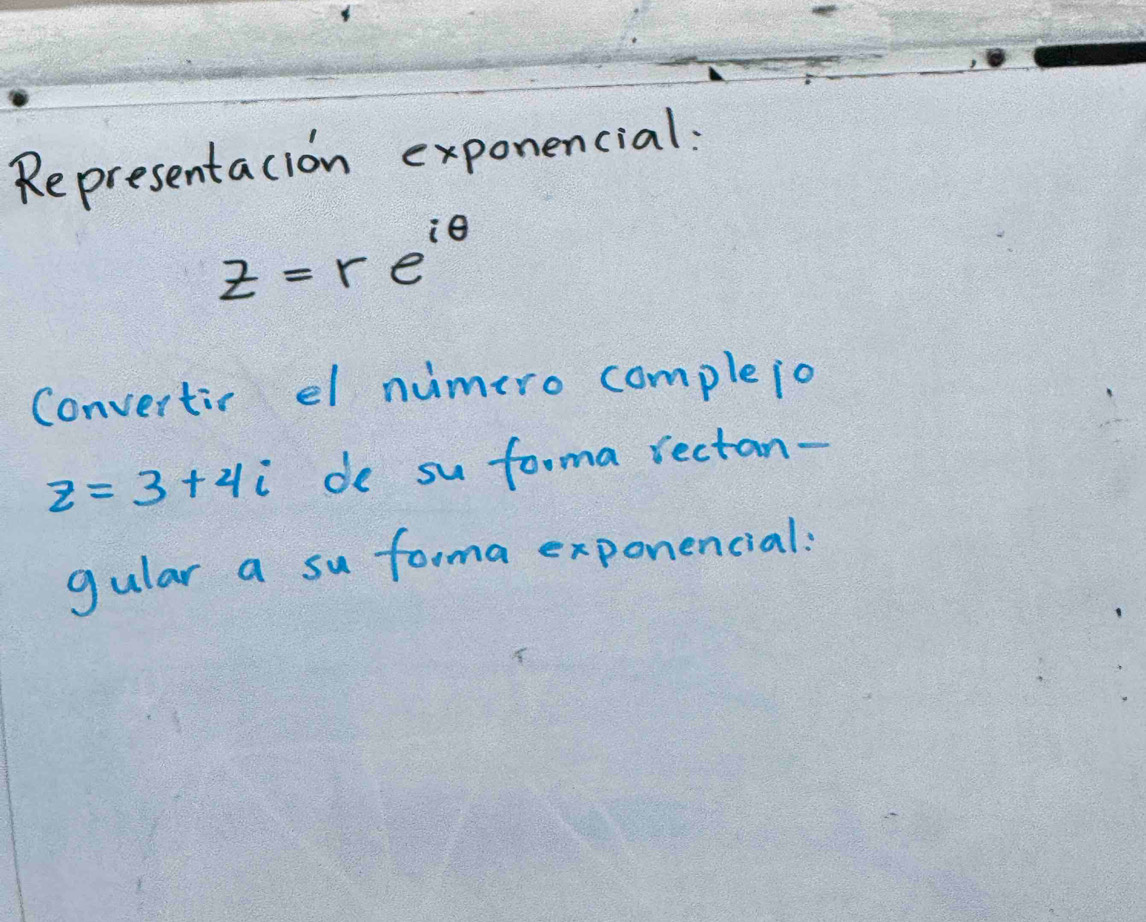 Representación exponencial:
z = r e^{iθ}
Convertir el número complejo
z = 3 + 4i de su forma rectan-
gular a su forma exponencial: